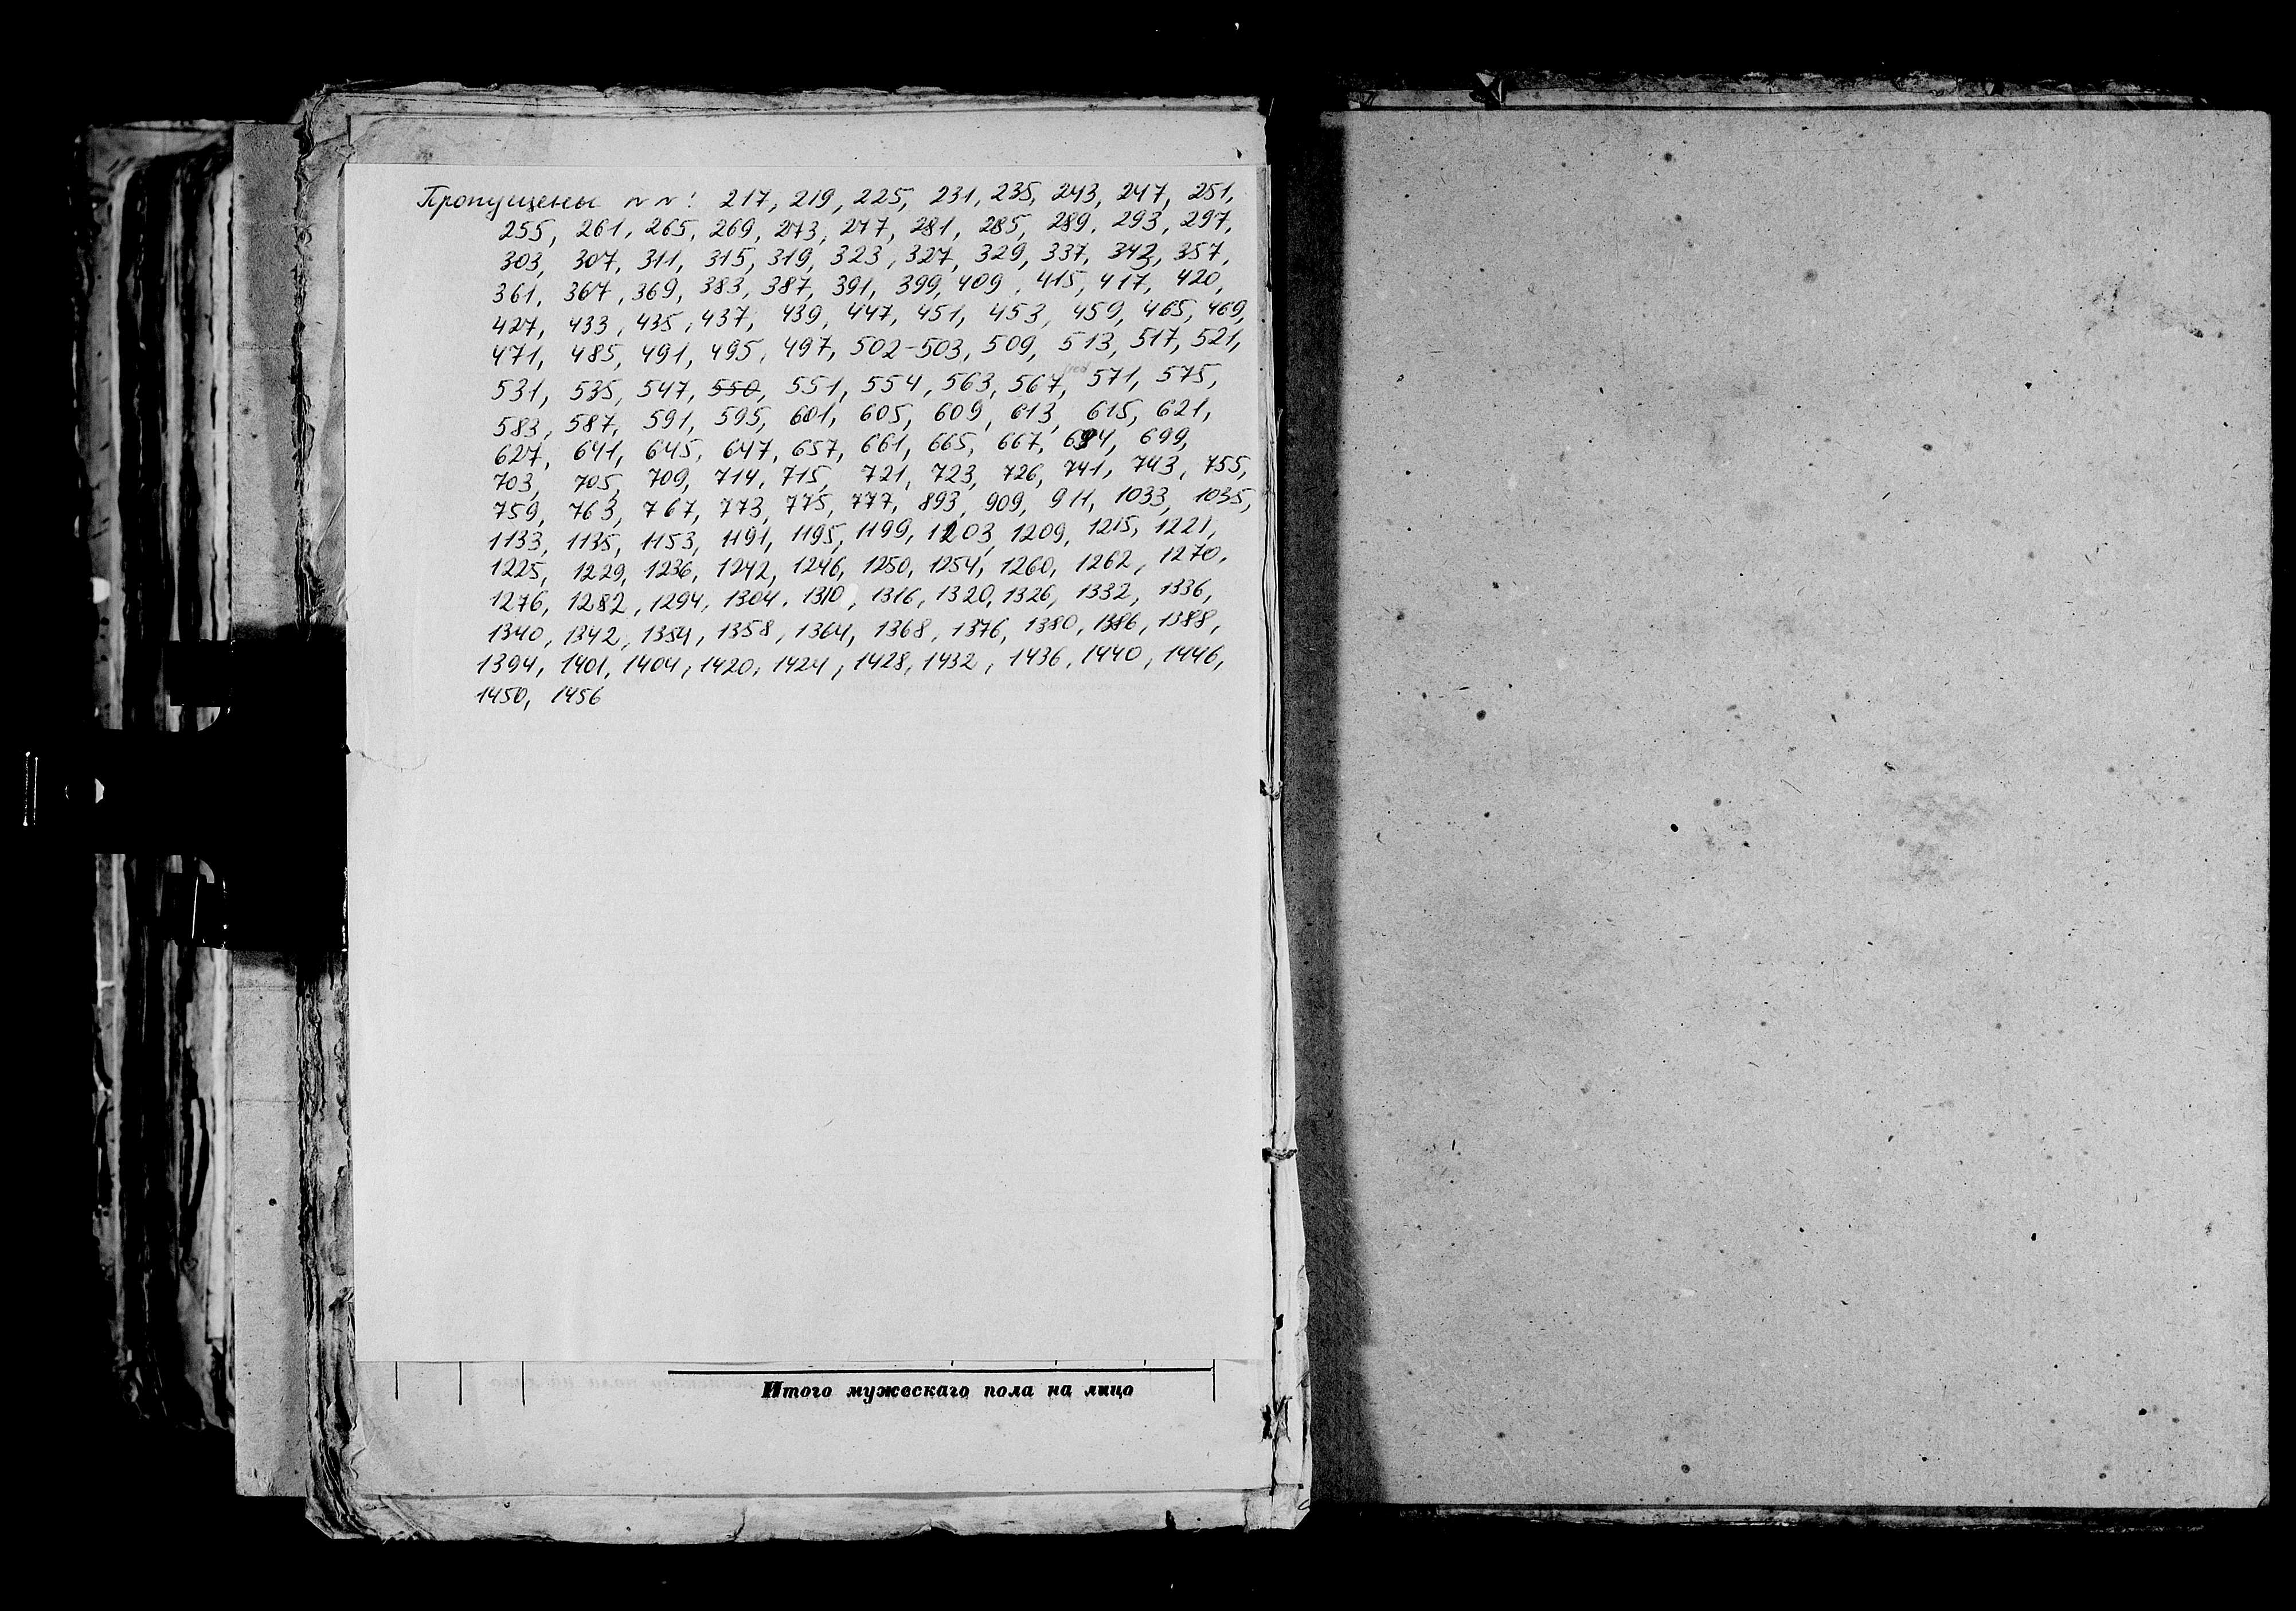 Пропущены №№: 217, 219, 225, 231, 235, 243, 247, 251,
255, 261, 265, 269, 273, 277, 281, 285, 289, 293, 297,
303, 307, 311, 315, 319, 323, 327, 329, 337, 342, 357,
361, 367, 369, 383, 387, 391, 399, 409, 415, 417, 420,
427, 433, 435, 437, 439, 447, 451, 453, 459, 465, 469,
471, 485, 491, 495, 497, 502-503, 509, 513, 517, 521,
531, 535, 547, 550, 551, 554, 563, 567, 571, 575,
583, 587, 591, 595, 601, 605, 609, 613, 615, 621,
627, 641, 645, 647, 657, 661, 665, 667, 699,
703, 705, 709, 714, 715, 721, 723, 726, 741, 743, 755,
759, 763, 767, 773, 775, 777, 893, 909, 911, 1033, 1035,
1133, 1135, 1153, 1191, 1195, 1199, 1203, 1209, 1215, 1221,
1225, 1229, 1236, 1242, 1246, 1250, 1254, 1260, 1262, 1270,
1276, 1282, 1294, 1304, 1310, 1316, 1320, 1326, 1332, 1336,
1340, 1342, 1354, 1358, 1364, 1368, 1376, 1380, 1386, 1388,
1394, 1401, 1404, 1420, 1424, 1428, 1432, 1436, 1440, 1446,
1450, 1456
Итого мужескаго пола на лицо